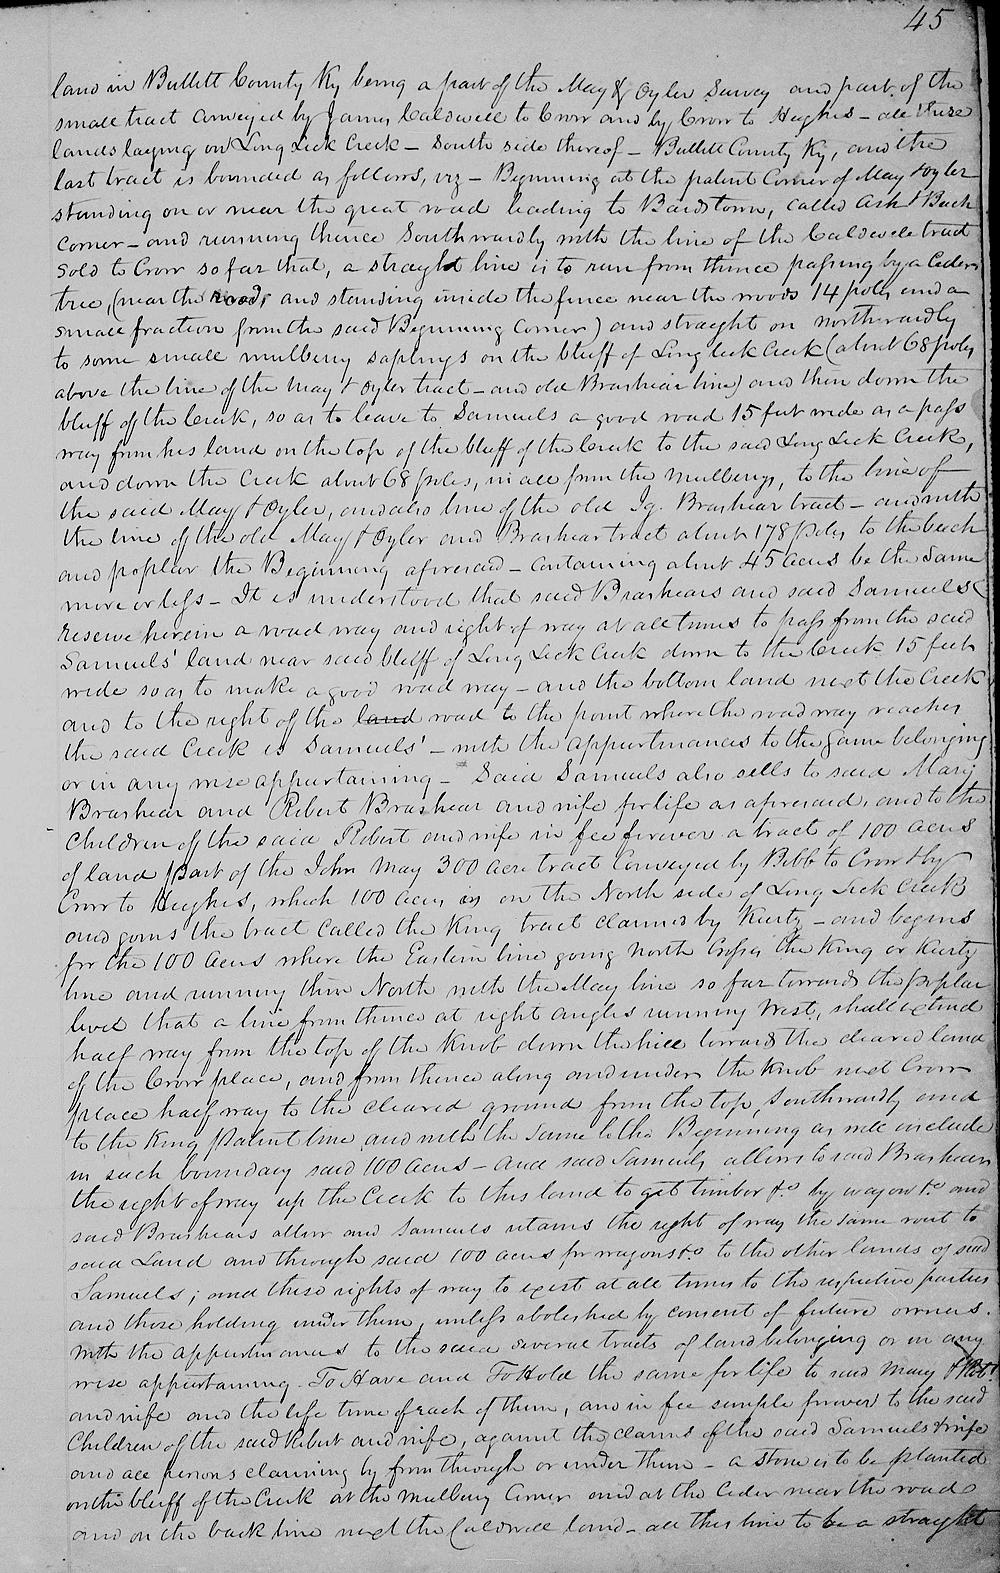 45
land in Bullitt County Ky being a part of the May & Oyler Survey and part of the
small tract conveyed by James Caldwell to Crow and by Crow to Hughes – all these
lands laying on Long Lick Creek – South side thereof – Bullitt County Ky, and the
last tract is bounded as follows, viz – Beginning at the patent Corner of May & Oyler
standing on or near the great road leading to Bardstown, called Ash & Beech
corner – and running thence Southwardly with the line of the Caldwell tract
sold to Crow so far that, a straight line is to run from thence passing by a Cedar
tree, (near the road, and standing inside the fence near the woods 14 poles and a
small fraction from the said Beginning Corner) and straight on northwardly
to some small mulberry saplings on the bluff of Long lick Creek (about 68 poles
above the line of the May & Oyler tract – and old Brashear line) and then down the
bluff of the Creek, so as to leave to Samuels a good road 15 feet wide as a pass
way from his land on the top of the bluff of the Creek to the said Long Lick Creek,
and down the Creek about 68 poles, in all from the mulberrys, to the line of
the said May & Oyler, and also line of the old Ig. Brashear tract – and with
the line of the old May & Oyler and Brashear tract about 178 poles to the beech
and poplar the Beginning aforesaid – containing about 45 acres be the same
more or less – It is understood that said Brashears and said Samuels
reserve herein a road way and right of way at all times to pass from the said
Samuels' land near said bluff of Long Lick Creek down to the Creek 15 feet
wide so as to make a good road way – and the bottom land next the Creek
and to the right of the land road to the point where the road way reaches
the said Creek is Samuels' – with the appurtenances to the same belonging
or in any wise appurtaining – Said Samuels also sells to said Mary
Brashear and Robert Brashear and wife for life as aforesaid, and to the
Children of the said Robert and wife in fee forever a tract of 100 acres
of land part of the John May 300 acre tract Conveyed by Bibb to Crow & by
Crow to Hughes, which 100 acres is on the North side of Long Lick Creek
and joins the tract called the King tract claimed by Kurtz – and begins
for the 100 acres where the Eastern line going north Crosses the King or Kurtz
line and running thence North with the May line so far towards the poplar
level that a line from thence at right angles running West, shall extend
half way from the top of the Knob down the hill toward the cleared land
of the Crow place, and from thence along and under the Knob next Crow
place half way to the cleared ground from the top, Southwardly and
to the King Patent line and with the same to the Beginning as will include
in such boundary said 100 acres – and said Samuels allows to said Brashears
the right of way up the Creek to this land to get timber &c by wagon &c and
said Brashears allow and Samuels retains the right of way the same rout to
said Land and through said 100 acres for wagons &c to the other lands of said
Samuels; and these rights of way to exist at all times to the respective parties
and those holding under them, unless abolished by consent of future owners.
With the appurtenances to the said several tracts of land belonging or in any
wise appurtaining. To Have and To Hold the same for life to said Mary & Robt.
and wife and the life time of each of them, and in fee simple forever to the said
Children of the said Robert and wife, against the claims of the said Samuels & wife
and all persons claiming by from through or under them – a stone is to be planted
on the bluff of the Creek at the mulberry Corner and at the Cedar near the road
and on the back line next the Caldwell land – all this line to be a straight